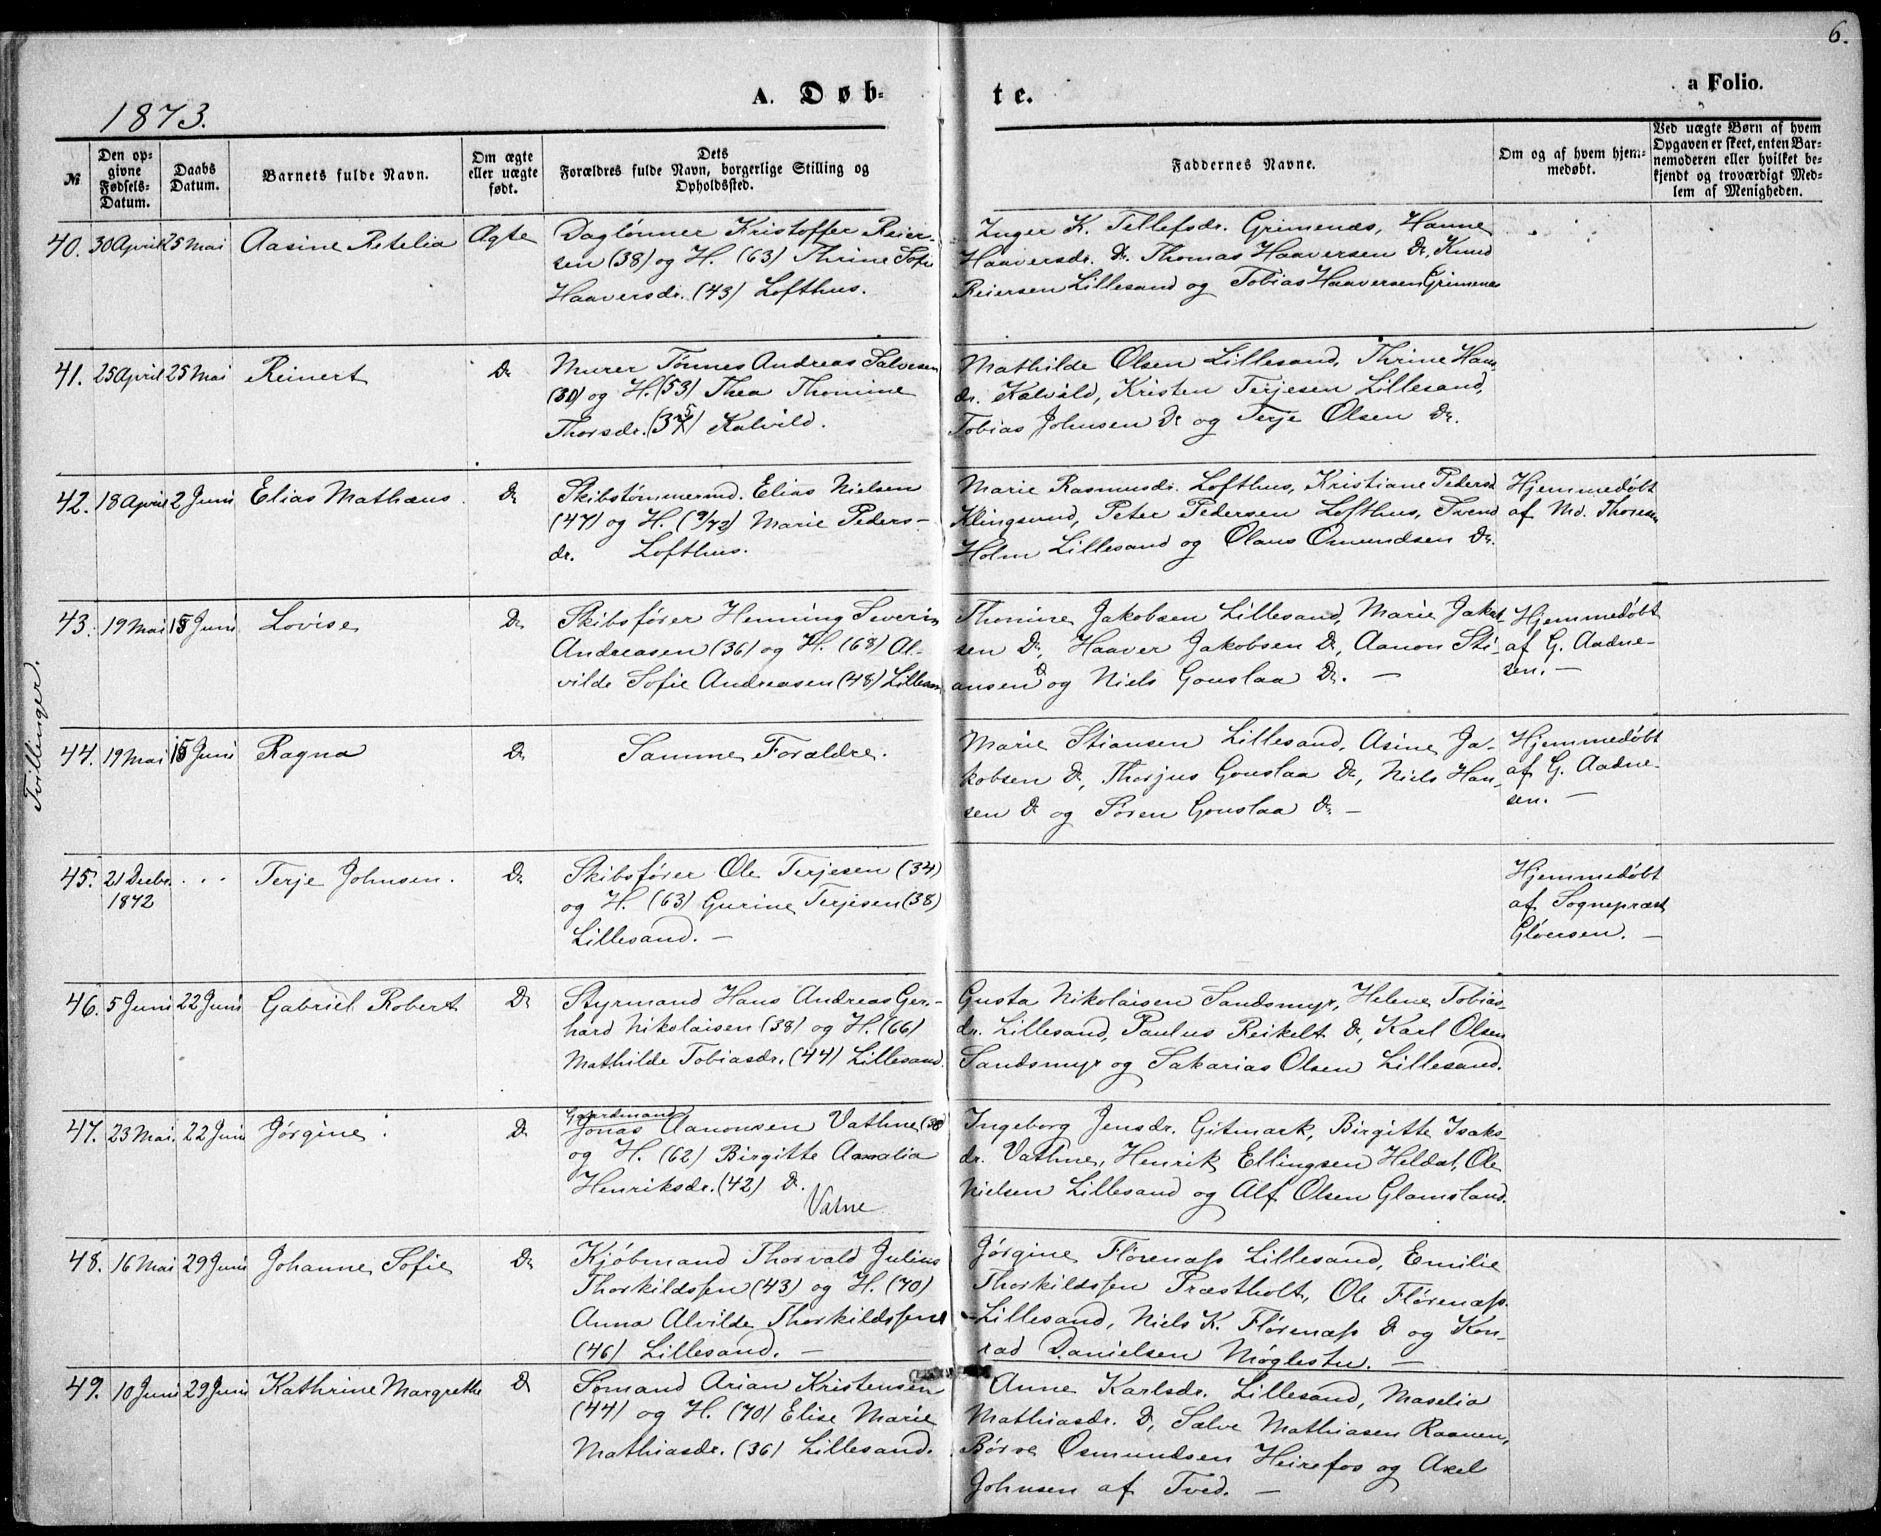 6.
1873.
A. Døb-
te.
a Folio.
№
Den op-
givne
Fødsels-
Datum.
Daabs
Datum.
Barnets fulde Navn.
Om ægte
eller uægte
født.
Dets
Forældres fulde Navn, borgerlige Stilling og
Opholdssted.
Faddernes Navne.
Om og af hvem hjem-
medøbt.
Ved uægte Børn af hvem
Opgaven er skeet, enten Bar-
nemoderen eller hvilket be-
kjendt og troværdigt Med-
lem af Menigheden.
40. 30 April 25 Mai Aasine Retelia Ægte
Daglønner Kristoffer Reier-
sen (38) og H. (63) Thrine Sofie
Haaversdr. (43) Lofthus.
Inger K. Tellefsdr. Grimenes, Hanne
Haaversdr. Do. Thomas Haaversen Do, Knud
Reiersen Lillesand og Tobias Haaversen Grimenes
41. 25 April 25 Mai Reinert Do
Murer Tønnes Andreas Salvesen
(30) og H. (53) Thea Thomine
Thorsdr. (35) Kalvild.
Mathilde Olsen Lillesand, Thrine Hans-
dr. Kalvild, Kristen Terjesen Lillesand,
Tobias Johnsen Do og Terje Olsen Do.
42. 18 April 2 Juni Elias Mathæus. Do
Skibstømmermd. Elias Nielsen
(47) og H. (9/72) Marie Peders-
dr. Lofthus.
Marie Rasmusdr. Lofthus, Kristiane Pedersd.
Klingsund, Peter Pedersen Lofthus, Svend
Holm Lillesand og Olaus Omundsen Do.
Hjemmedøbt
af Md. Thoresen
Tvillinger.
43. 19 Mai 15 Juni Lovise Do
Skibsfører Henning Severin
Andreasen (36) og H. (68) Al-
vilde Sofie Andreasen (48) Lillesan
Thomine Jakobsen Lillesand, Marie Jakob-
sen Do, Haaver Jakobsen Do, Aanon Sti-
ansen Do og Niels Gouslaa Do. —
Hjemmedøbt
af G. Aadne-
sen. —
44. 19 Mai 15 Juni Ragna Do
Samme Forældre.
Marie Stiansen Lillesand, Asine Ja-
kobsen Do, Thorjus Gouslaa Do, Niels Han-
sen Do og Søren Gouslaa Do —
Hjemmedøbt
af G. Aadne-
sen. —
45. 21 Decbr.
1872 Terje Johnsen. Do
Skibsfører Ole Terjesen (34)
og H. (63) Gurine Terjesen (38)
Lillesand. —
Hjemmedøbt
af Sognepræst
Gløersen. —
46. 5 Juni 22 Juni Gabriel Robert Do
Styrmand Hans Andreas Ger-
hard Nikolaisen (38) og H. (66)
Mathilde Tobiasdr. (44) Lillesand.
Gusta Nikolaisen Sandsmyr, Helene Tobias-
dr. Lillesand, Paulus Reikelt Do, Karl Olsen
Sandsmyr og Sakarias Olsen Lillesand.
47. 23 Mai. 22 Juni Jørgine. Do
Gaardmand
Jonas Aanonsen Vathne (38)
og H. (62) Birgitte Amalia
Henriksdr. (42) Do.
Vatne
Ingeborg Jensdr. Gitmark, Birgitte Isaks-
dr. Vathne, Henrik Ellingsen Heldal, Ole
Nielsen Lillesand og Alf Olsen Glamsland.
48. 16 Mai 29 Juni Johanne Sofie Do
Kjøbmand Thorvald Julius
Thorkildssen (43) og H. (70)
Anna Alvilde Thorkildssen
(46) Lillesand. —
Jørgine Flørenæss Lillesand, Emilie
Thorkildssen Præstholt, Ole Flørenæss
Lillesand, Niels K. Flørenæss Do og Kon-
rad Danielsen Møglestu. —
49. 10 Juni 29 Juni Kathrine Margrethe Do
Sømand Arian Kristensen
(44) og H. (70) Elise Marie
Mathiasdr. (36) Lillesand.
Anne Karlsdr. Lillesand, Maselia
Mathiasdr. Do, Salve Mathiasen Raanen,
Børve Osmundsen Heirefos og Axel
Johnsen af Tved. —